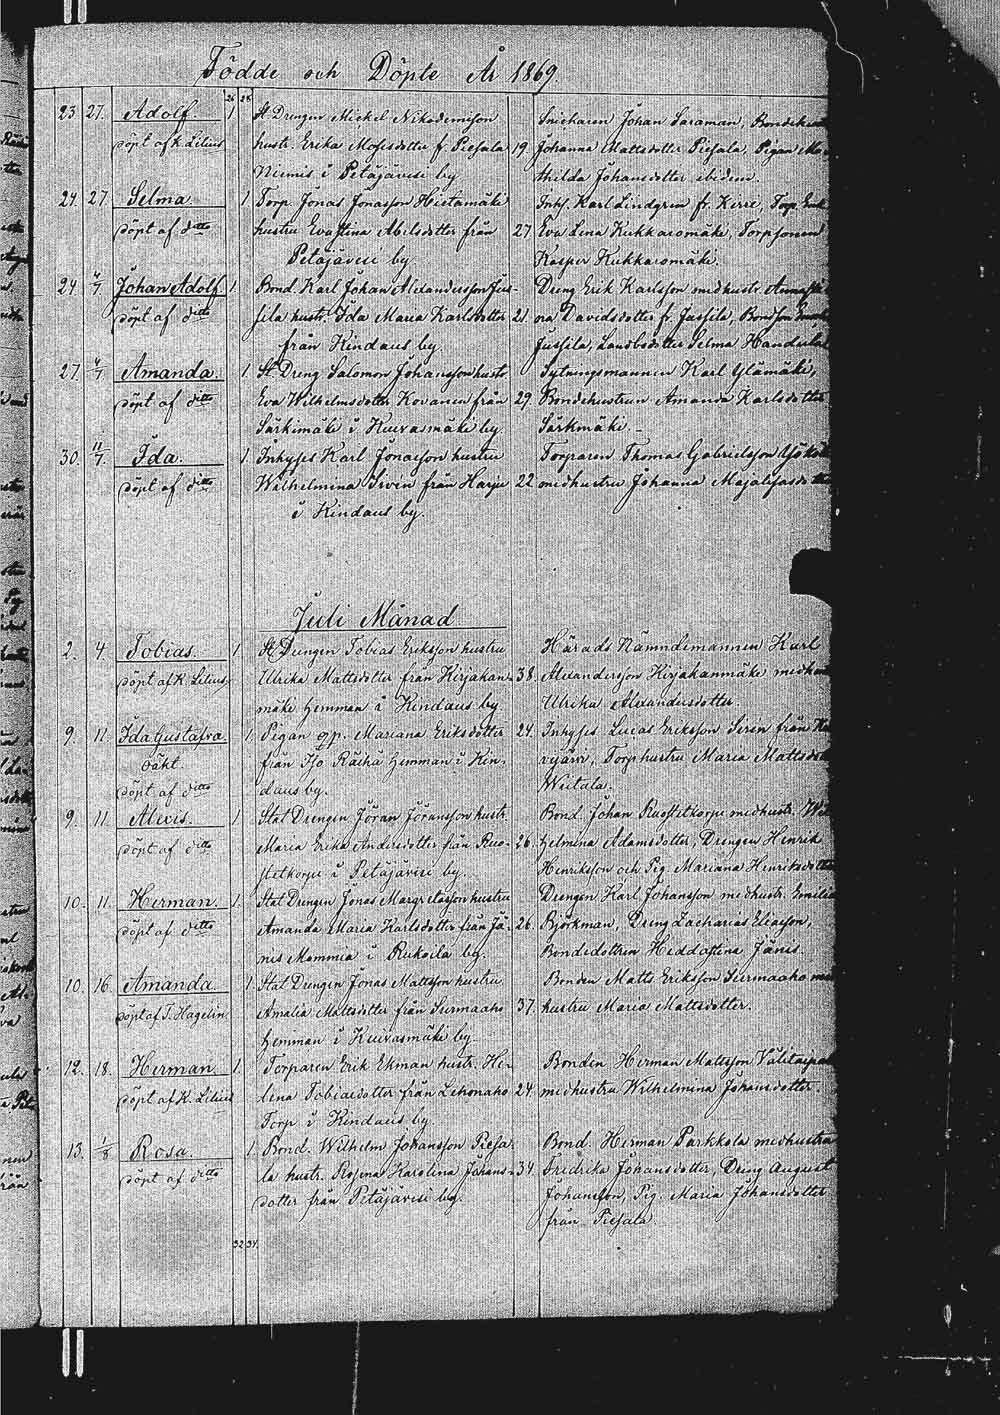 Födde och Döpte År 1869.
26 28
23. 27. Adolf. 1 St. Drengen Mickel Nikodemsson Snickaren Johan Saraman, Bonde
döpt af K. Lilius hustr. Erika Mosisdotter fr. Piesala 19. Johanna Mattsdotter Piesala, Pigan Ma-
Niemis i Petäjävesi by thilda Johansdotter ibidem.
24. 27. Selma. 1 Torp. Jonas Jonasson Hietamäki Inhs. Karl Lindgren fr. Kerre, Torp.
döpt af ditto hustru Eva Stina Abelsdotter från 27. Eva Lena Kukkaromäki, Torpsonen
Petäjävesi by Kasper Kukkaromäki.
24. 4/7 Johan Adolf. 1. Bond. Karl Johan Alexandersson Jus- Dreng Erik Karlsson med hustr.
döpt af ditto sila hustr. Ida Maria Karlsdotter 21. Davidsdotter fr. Jussila,
från Kindaus by Jussila, Selma
27. 4/7. Amanda. 1 St. Dreng Salomon Johansson hustr. Sytningsmannen Karl Ylämäki,
döpt af ditto Eva Wilhelmsdotter Kovanen från 29. Bondehustrun Amanda Karlsdotter
Särkimäki i Kuivasmäki by Särkimäki.
30. 11/7. Ida. 1. Inhyses Karl Jonasson hustru Torparen Thomas Gabrielsson
döpt af ditto Wilhelmina Irvén från Harju 22 med hustru Johanna
i Kindaus by.
Juli Månad
2. 4. Tobias. 1 St. Drengen Tobias Eriksson hustru Härads Nämndemannen Karl
döpt af K. Lilius Ulrika Mattsdotter från Kirjakan- 38. Alexandersson Kirjakanmäki med
mäki hemman i Kindaus by Ulrika Alexandersdotter
9. 11. Ida Gustafva 1. Pigan Mariana Eriksdotter 24. Inhyses Lucas Eriksson Siren från
oäkt. från Iso Räihä hemman i Kin- Torp hustru Maria
döpt af ditto daus by. Wiitala.
9. 11. Alexis. 1. Stat Drengen Jöran Jöransson hustr. Bond. Johan Ruostetkorpi med hustr. Wil-
döpt af ditto Maria Erika Andersdotter från Ruo- 26. helmina Adamsdotter, Drengen Henrik
stetkorpi i Petäjävesi by. Henriksson och Pig. Mariana Henriksdotter
10. 11. Herman. 1. Stat Drengen Jonas Margretasson hustru Drengen Karl Johansson med hustr. Emilia
döpt af ditto Amanda Maria Karlsdotter från Jä- 26. Björkman, Dreng Zacharias Eliasson,
nis Mommia i Rukoila by. Bondedottren Heddastina Jänis.
10. 16. Amanda. 1. Stat Drengen Jonas Mattsson hustru Bonden Matts Eriksson Surmaaho med
döpt af J. Hagelin Amalia Mattsdotter från Surmaaho 37. hustru Maria Mattsdotter.
hemman i Kuivasmäki by
12. 18. Herman 1. Torparen Erik Ekman hustr. He- Bonden Herman Mattsson
döpt af K. Lilius lena Tobiasdotter från Lehonaho 24. med hustru Wilhelmina Johansdotter
Torp i Kindaus by.
13. 1/8 Rosa. 1. Bond. Wilhelm Johansson Piesa- Bond. Herman Parkkola med hustru
döpt af ditto la hustr. Rosina Karolina Johans- 34. Fredrika Johansdotter, Dreng August
dotter från Petäjävesi by. Johansson, Pig. Maria Johansdotter
från Piesala
32 34.